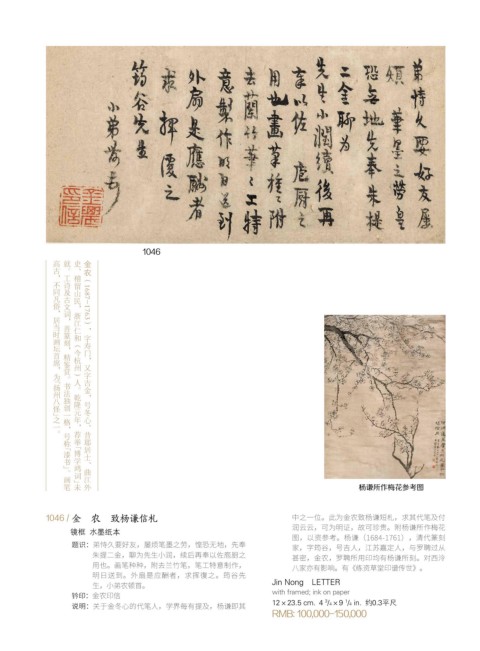 弟恃久要好友屡
烦 華墨之劳皇
恐無地先奉朱提
二金聊为
先生小润续後再
奉以佐 庖厨之
用也畫草種之附
去蘭竹筆之工特
意製作明日送到
外扇是應酬者
求 挥霞之
筠谷先生
小弟农頓首
1046
金农（1687-1763），字寿门，又字吉金，号冬心，昔耶居士，曲江外
史，稽留山民，浙江仁和（今杭州）人，乾隆元年，荐举「博学鸿词」未
就，工诗及古文词，喜篆刻，精鉴赏，书法独创一格，号称「漆书」，画笔
高古，不同凡俗，居当时画坛首领，为「扬州八怪」之一。
杨谦所作梅花参考图
1046 / 金 农 致杨谦信札
镜框 水墨纸本
题识：弟恃久要好友，屡烦笔墨之劳，惶恐无地，先奉
朱提二金，聊为先生小润，续后再奉以佐庖厨之
用也。画笔种种，附去兰竹笔，笔工特意制作，
明日送到。外扇是应酬者，求挥霞之。筠谷先
生，小弟农顿首。
钤印：金农印信
说明：关于金冬心的代笔人，学界每有提及，杨谦即其
中之一位。此为金农致杨谦短札，求其代笔及付
润云云，可为明证，故可珍贵。附杨谦所作梅花
图，以资参考。杨谦（1684-1761），清代篆刻
家，字筠谷，号吉人，江苏嘉定人，与罗聘过从
甚密。金农，罗聘所用印均有杨谦所刻，对西泠
八家亦有影响。有《栋筑草堂印谱传世》。
Jin Nong LETTER
with framed; ink on paper
12 x 23.5 cm. 4 3/4 x 9 1/4 in. 约0.3平尺
RMB: 100,000-150,000